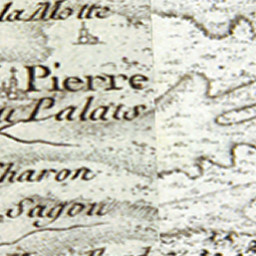 la Motte
Pierre
Palais
Charon
Sagou